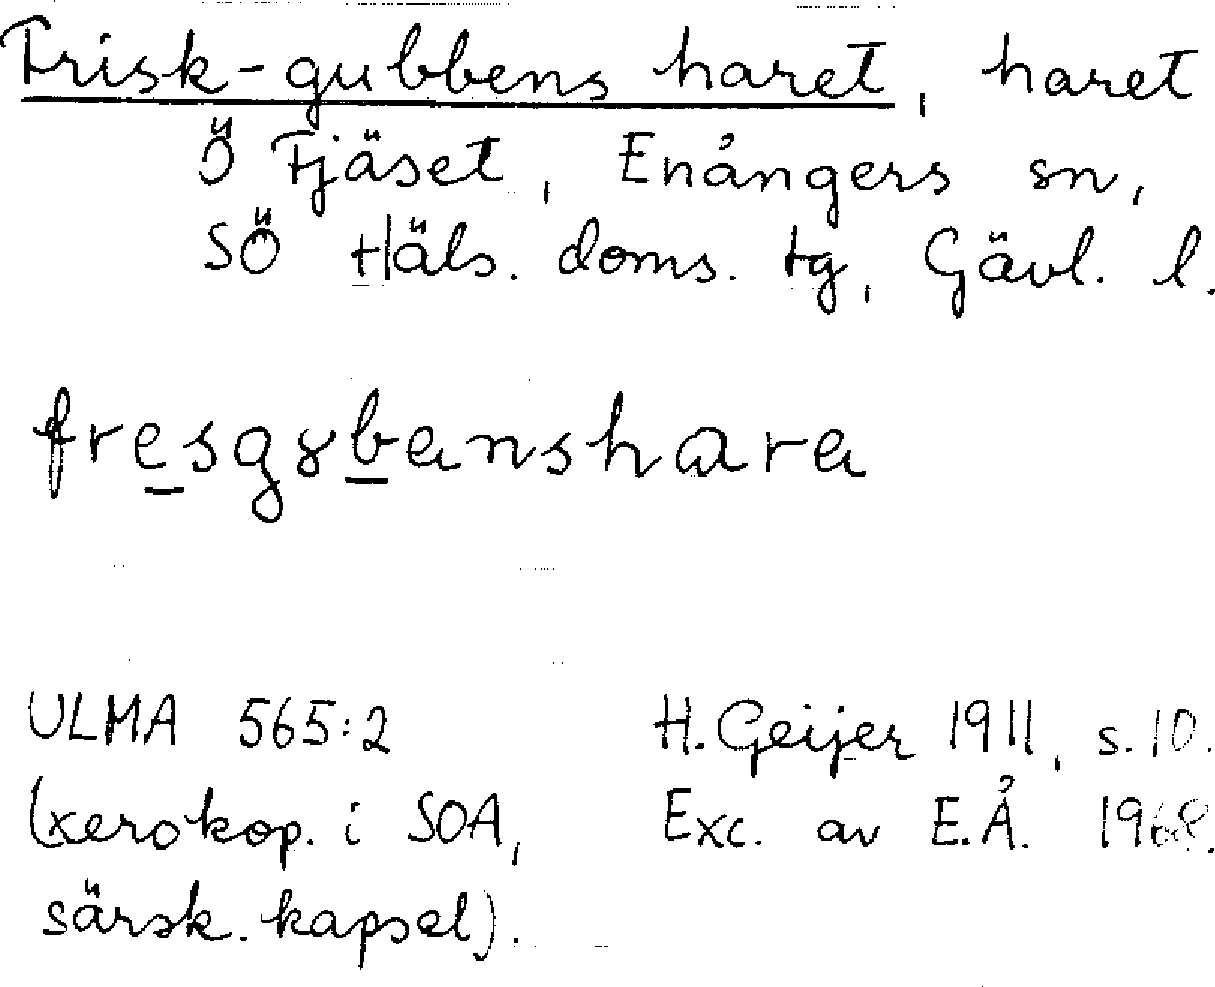 Frisk-gubbens haret, haret
Ö Fjäset, Enångers sn,
SÖ Häls. doms. tg, Gävl. l.
fresgȣbanshara
ULMA 565:2 H. Geijer 1911, s. 10.
(xerokop. i SOA, Exc. av E.Å. 1968.
särsk. kapsel).